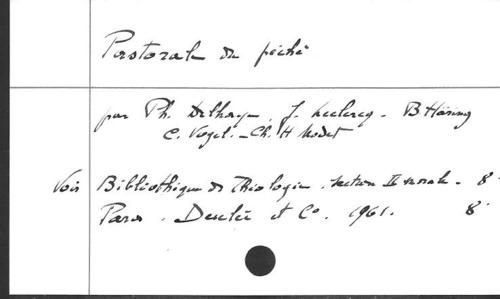 Pastorale du péché
par Ph. Delhaye, J. Leclercq. B Häring
C. Vogel. - Ch. H Nodet
Voir Bibliothèque de Théologie. section II morale. 8
Paris. Desclée et Co. 1961. 8°